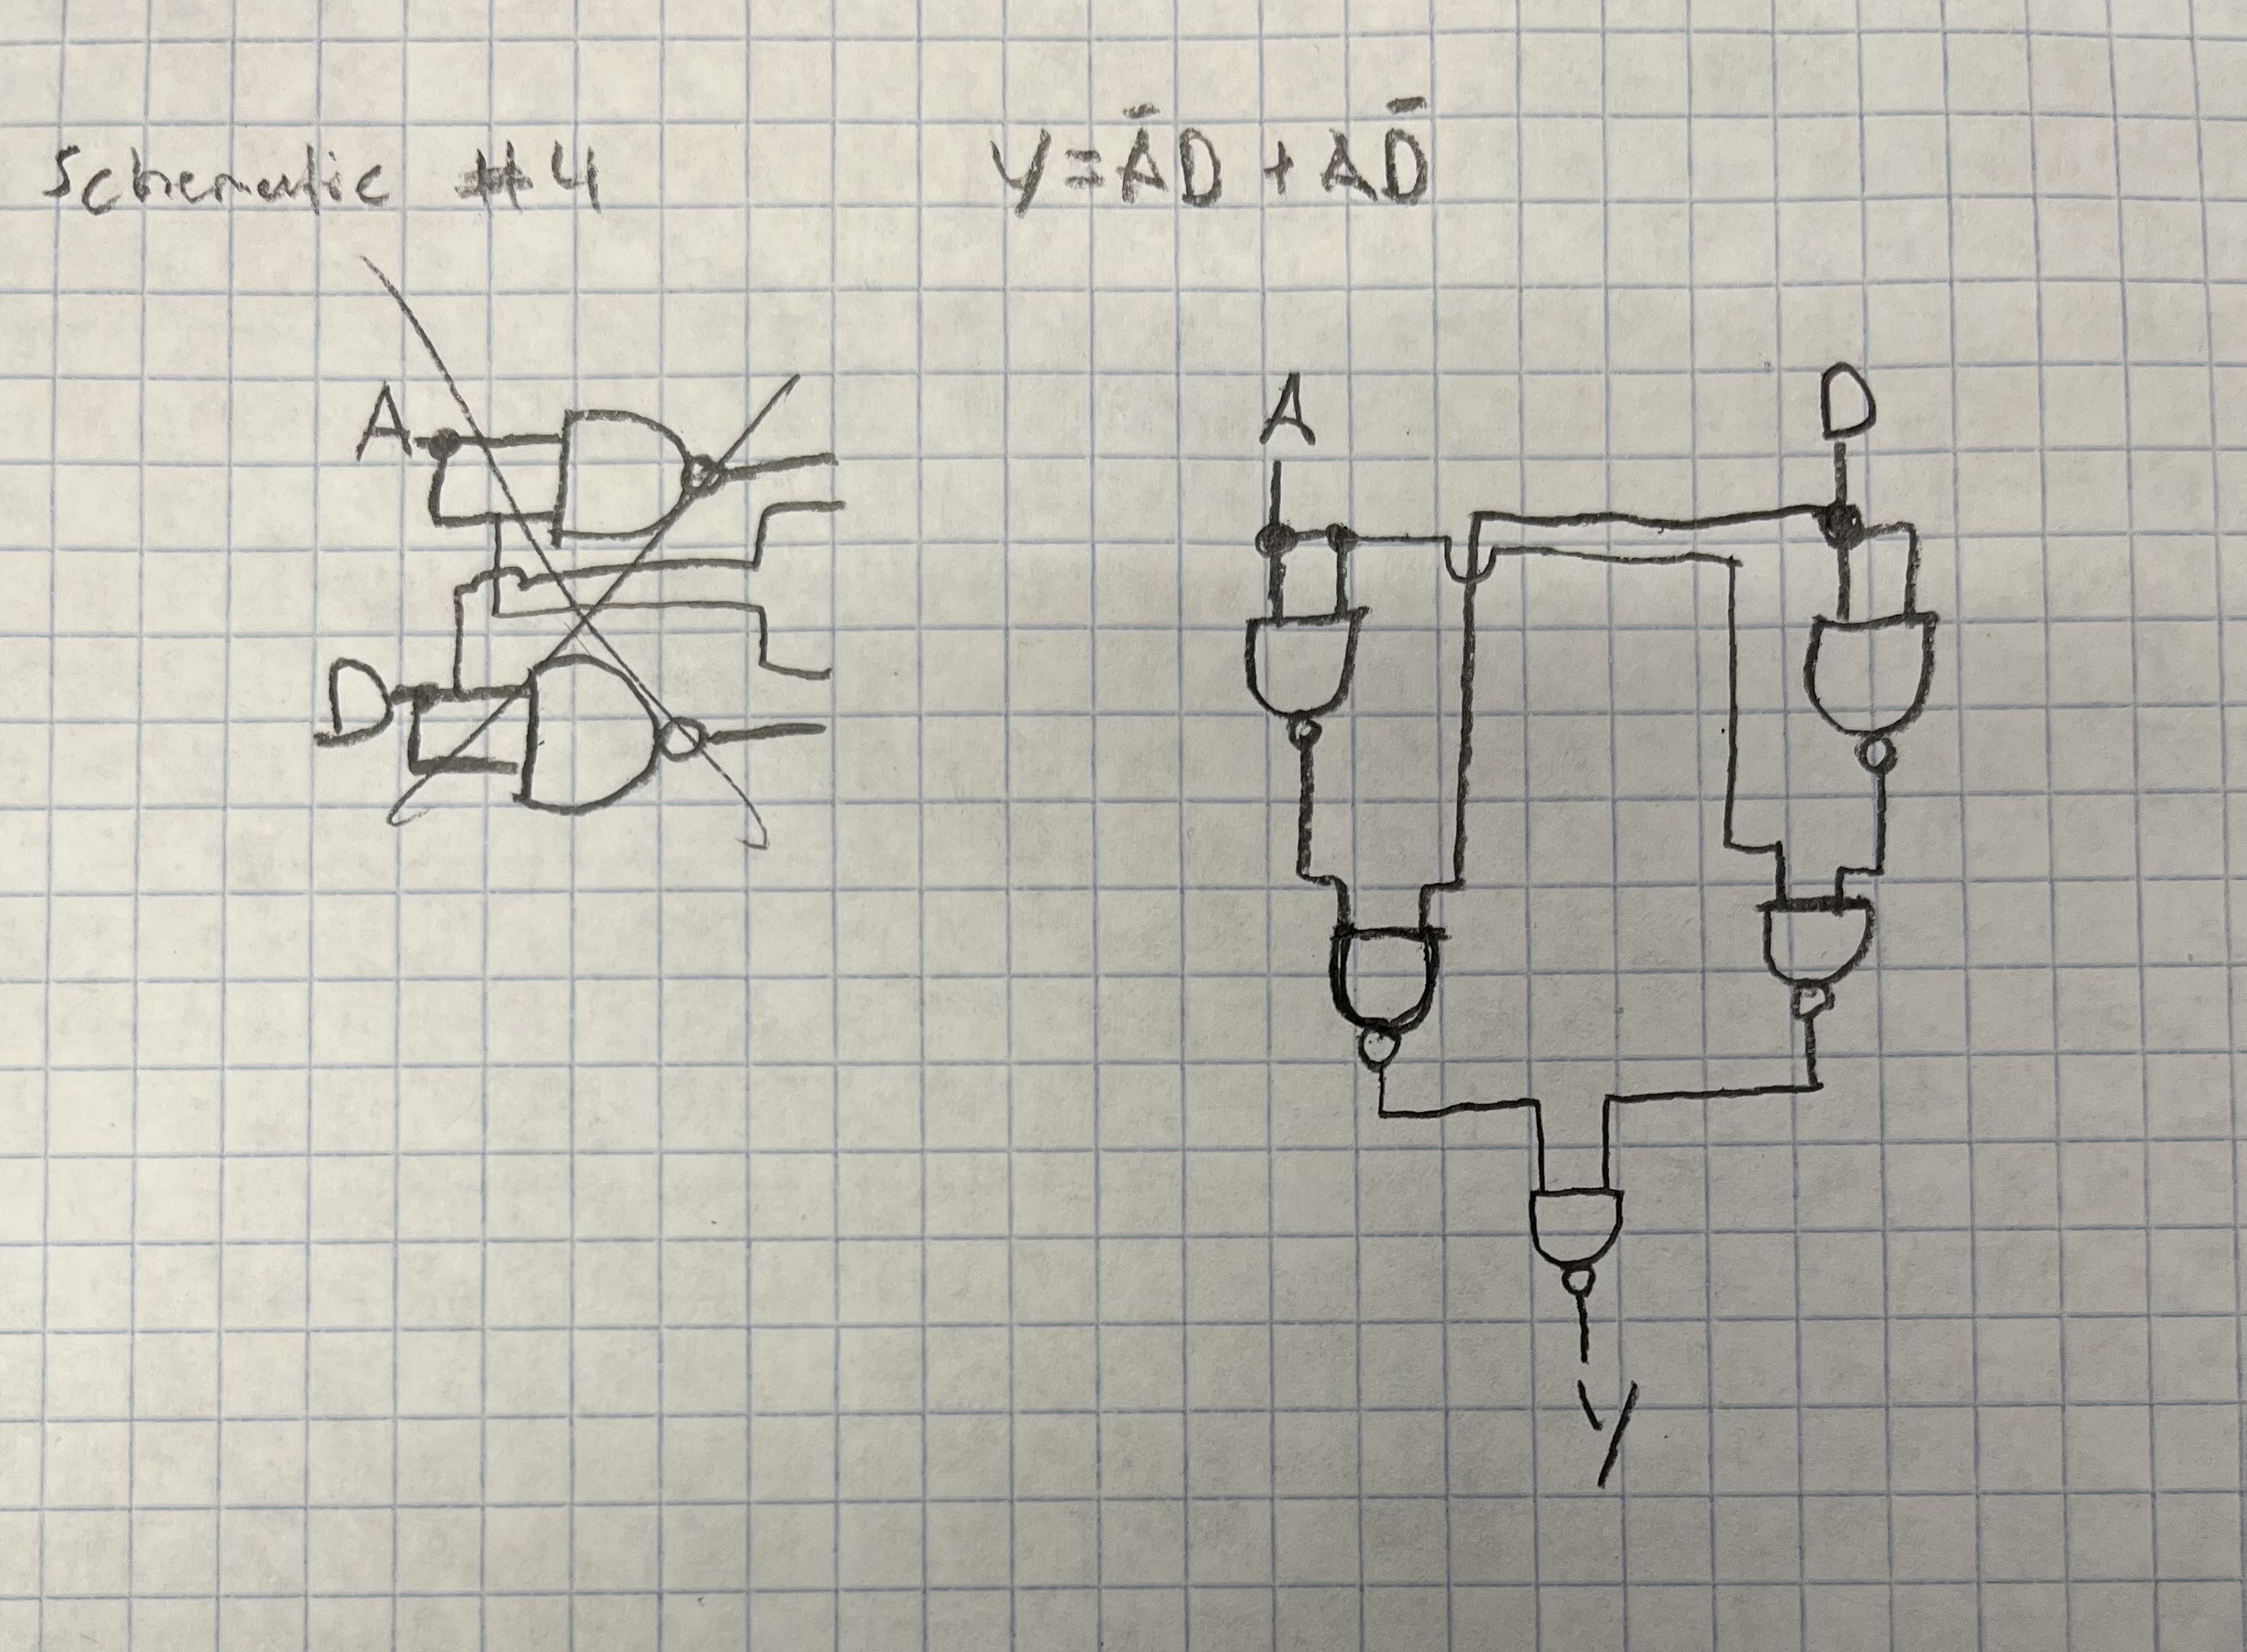 Schematic #4
Y = ĀD + AD̄
A
D
A
D
Y